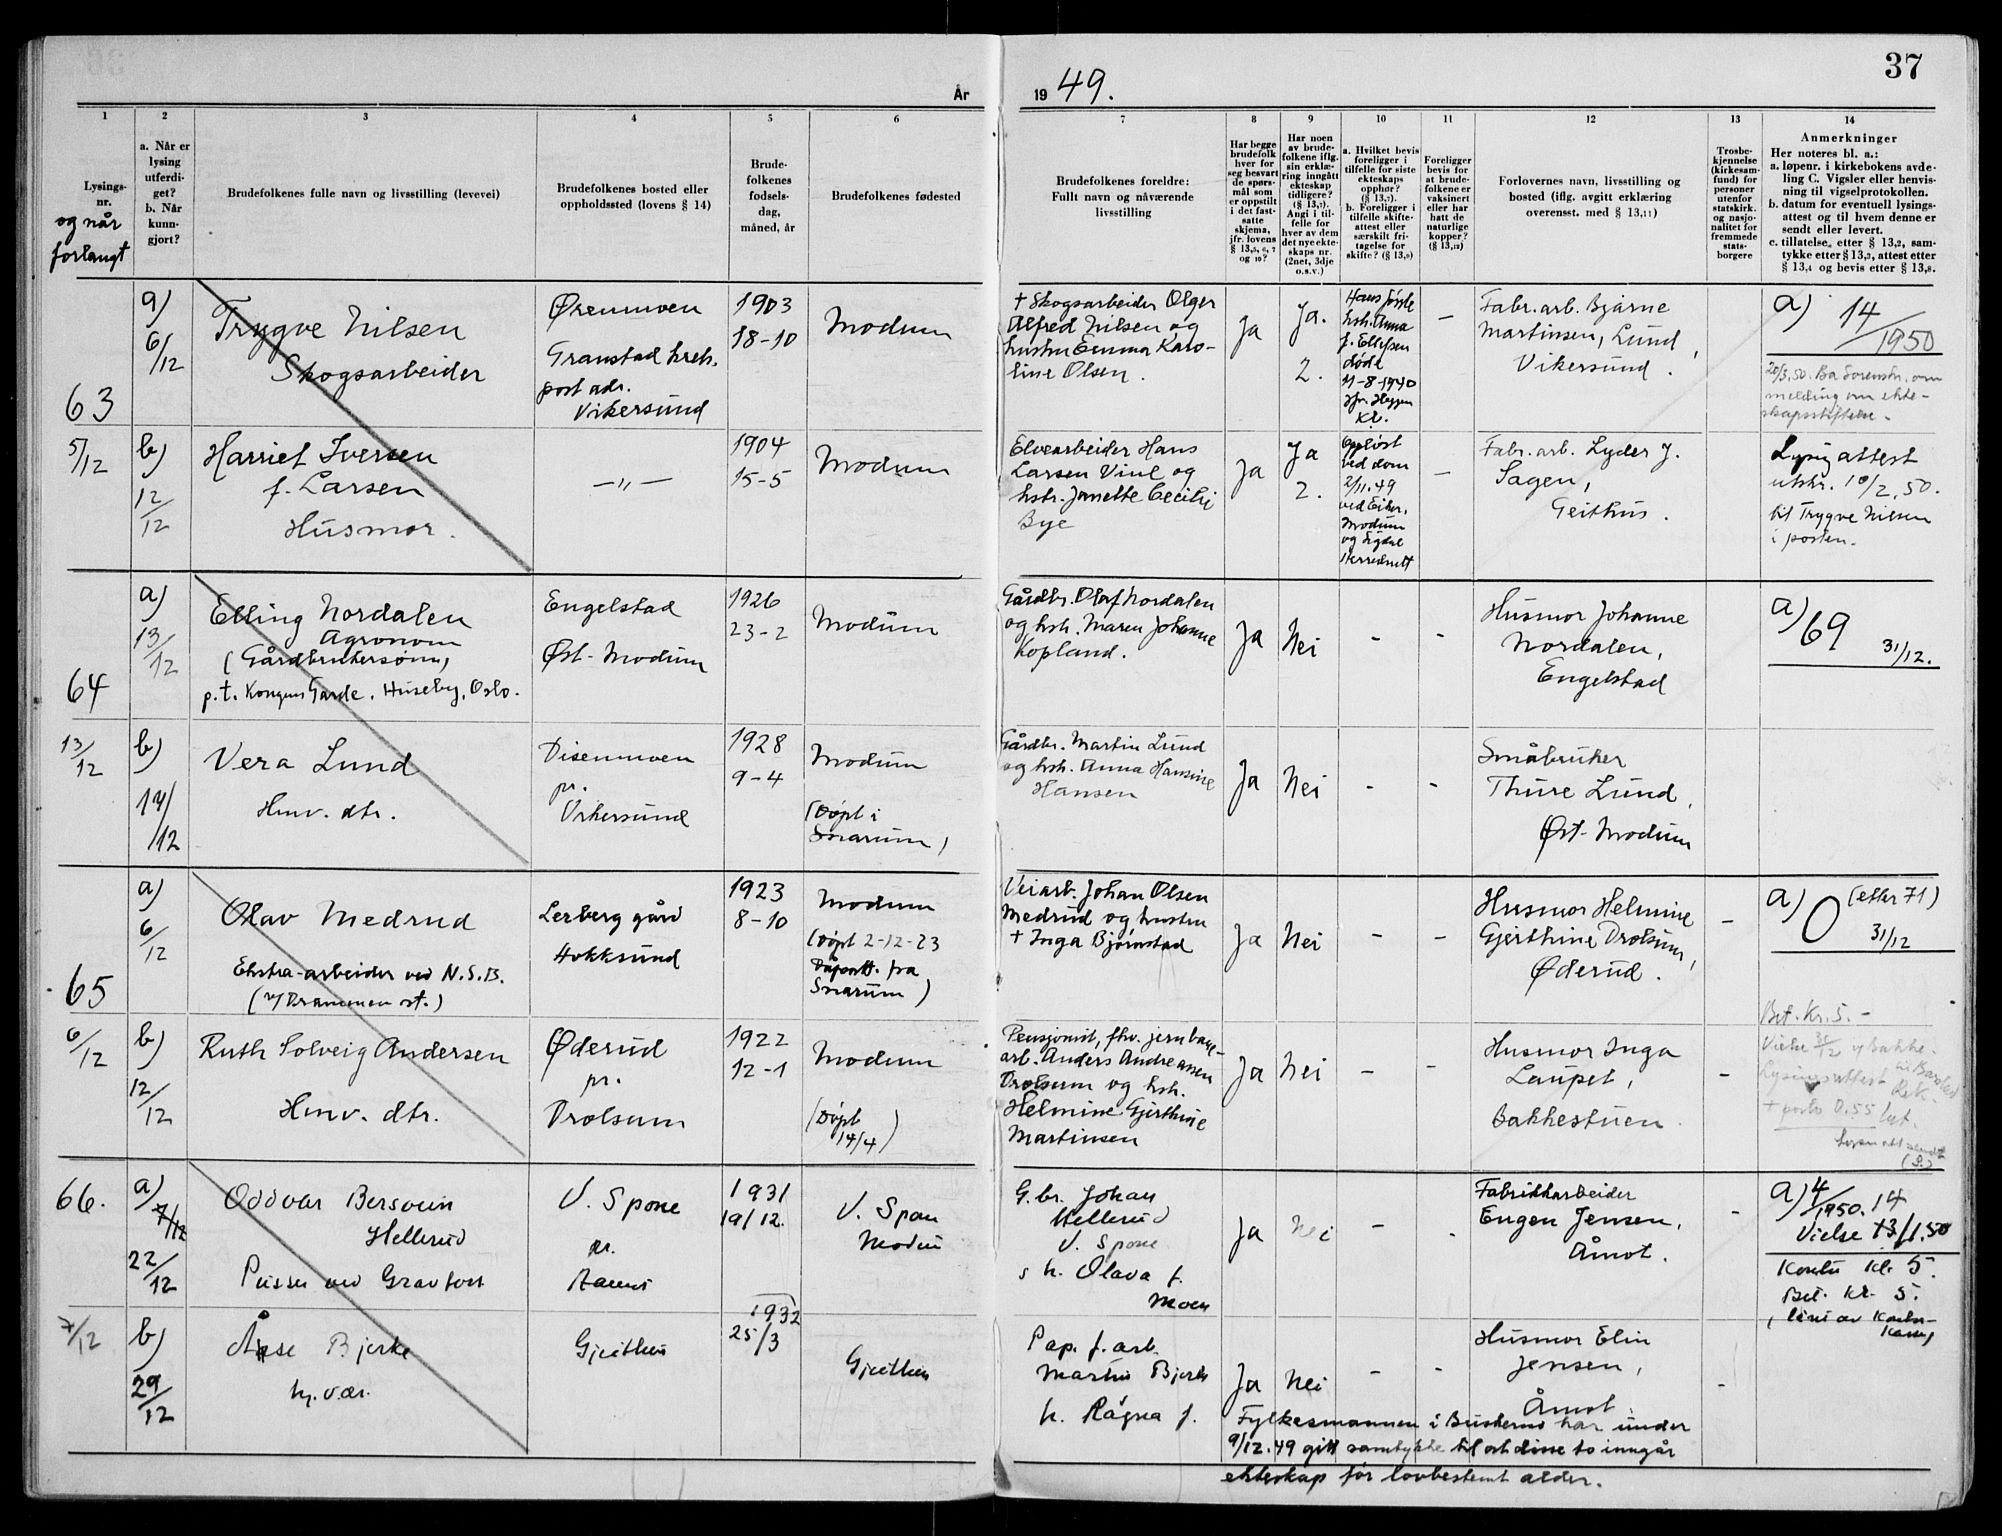 37
År
1949.
1
2
3
4
5
6
7
8
9
10
11
12
13
14
Lysings-
nr.
og når
forlangt
a. Når er
lysing
utferdi-
get?
b. Når
kunn-
gjort?
Brudefolkenes fulle navn og livsstilling (levevei)
Brudefolkenes bosted eller
oppholdssted (lovens § 14)
Brude-
folkenes
fødsels-
dag,
måned, år
Brudefolkenes fødested
Brudefolkenes foreldre:
Fullt navn og nåværende
livsstilling
Har begge
brudefolk
hver for
seg besvart
de spørs-
mål som
er oppstilt
i det fast-
satte
skjema,
jfr. lovens
§ 13,5, 6, 7
og 10?
Har noen
av brude-
folkene iflg.
sin erklæ-
ring inngått
ekteskap
tidligere?
(§ 13,7).
Angi i til-
felle for
hver av dem
det nye ekte-
skaps nr.
(2net, 3dje
o.s.v.)
a. Hvilket bevis
foreligger i
tilfelle for siste
ekteskaps
opphør?
(§ 13,7).
b. Foreligger i
tilfelle skifte-
attest eller
særskilt fri-
tagelse for
skifte? (§ 13,9)
Foreligger
bevis for
at brude-
folkene er
vaksinert
eller har
hatt de
naturlige
kopper?
(§ 13,12)
Forlovernes navn, livsstilling og
bosted (iflg. avgitt erklæring
overensst. med § 13,11)
Trosbe-
kjennelse
(kirkesam-
fund) for
personer
utenfor
statskirk.
og nasjo-
nalitet for
fremmede
stats-
borgere
Anmerkninger
Her noteres bl. a.:
a. løpenr. i kirkebokens avde-
ling C. Vigsler eller henvis-
ning til vigselprotokollen.
b. datum for eventuell lysings-
attest og til hvem denne er
sendt eller levert.
c. tillatelse etter § 13,2, sam-
tykke etter § 13,3, attest etter
§ 13,4 og bevis etter § 13,8.
63
5/12
a)
6/12
Trygve Nilsen
Skogsarbeider
Ørenmoen
Granstad krets.
post adr.
Vikersund
1903
18-10
Modum
+ Skogsarbeider Olger
Alfred Nilsen og
hustru Emma Karo-
line Olsen.
Ja
Ja.
2.
Hans første
hstr. Anna
f. Ellefsen
døde
11-8-1940
Kl.
-
Fabr. arb. Bjarne
Martinsen, Lund,
Vikersund.
a) 14/1950
20/3.50. Ba Sorenskr. om
melding om ekte-
skapsstiftelse.
b)
12/12
Harriet Iversen
f. Larsen
Husmor.
-"-
1904
15-5
Modum
Elvearbeider Hans
Larsen Vine og
hstr. Janette Cecilie
Bye
Ja
Ja
2.
Oppløst
ved dom
2/11.49
ved Eiker,
Modum
og Sigdal
Herredsrett
-
Fabr. arb. Lyder J.
Sagen,
Geithus.
Lysig attest
utskr. 10/2.50.
til Trygve Nilsen
i posten.
64
13/12
a)
13/12
Elling Nordalen
Agronom
(Gårdbrukersønn,
p.t. Kongens Garde. Huseby, Oslo.
Engelstad
Øst-Modum
1926
23-2
Modum
Gårdbr. Olaf Nordalen
og hstr. Maren Johanne
Kopland.
Ja
Nei
-
-
Husmor Johanne
Nordalen,
Engelstad
a) 69 31/12.
b)
14/12
Vera Lund
Hmv. dtr.
Disenmoen
pr.
Vikersund
1928
9-4
Modum
(Døpt i
Snarum)
Gårdbr. Martin Lund
og hstr. Anna Hansine
Hansen
Ja
Nei
-
-
Småbruker
Thure Lund,
Øst-Modum
65
6/12
a)
6/12
Olav Medrud
Ekstra-arbeider ved N.S.B.
(v/Drammen st.)
Lerberg gård
Hokksund
1923
8-10
Modum
(Døpt 2-12-23
Dåpsatt. fra
Snarum)
Veiarb. Johan Olsen
Medrud og hustru
+ Inga Bjørnstad
Ja
Nei
-
-
Husmor Helmine
Gjerthine Drolsum,
Øderud.
-
a) 0 (etter 71)
31/12
b)
12/12
Ruth Solveig Andersen
Hmv. dtr.
Øderud
pr.
Drolsum
1922
12-1
Modum
(Døpt
14/4)
Pensjonist, fhv. jernbane-
arb. Anders Andreassen
Drolsum og hstr.
Helmine Gjerthine
Martinsen
Ja
Nei
-
-
Husmor Inga
Laupet,
Bakkestuen
-
Bet. Kr. 5.-
Vielse 31/12 v/Bakke.
Lysingsattest
+ porto 0.55 bet.
66.
7/12
a)
7/12
22/12
Oddvar Bersvein
Hellerud
Pusser ved Gravfoss
V. Spone
pr.
Aamot
1931
19/12.
V. Spon
Modum
G.br. Johan
Hellerud
V. Spone
h. Olava f.
Moen
Ja
Nei
-
-
Fabrikkarbeider
Eugen Jensen,
Åmot.
-
a) 4/1950. 14
Vielse 13/1.50
Kontor Kr 5.
Bet. Kr. 5.
b)
29/12
Åse Bjerke
hj. vær.
Gjeithus
1932
25/3
Gjeithus
Pap. f. arb.
Martin Bjerke
h. Ragna f.
Ja
Nei
-
-
Husmor Elin
Jensen,
Åmot
-
Fylkesmannen i Buskerud har under
9/12.49 gitt samtykke til at disse to inngår
ekteskap før lovbestemt alder.